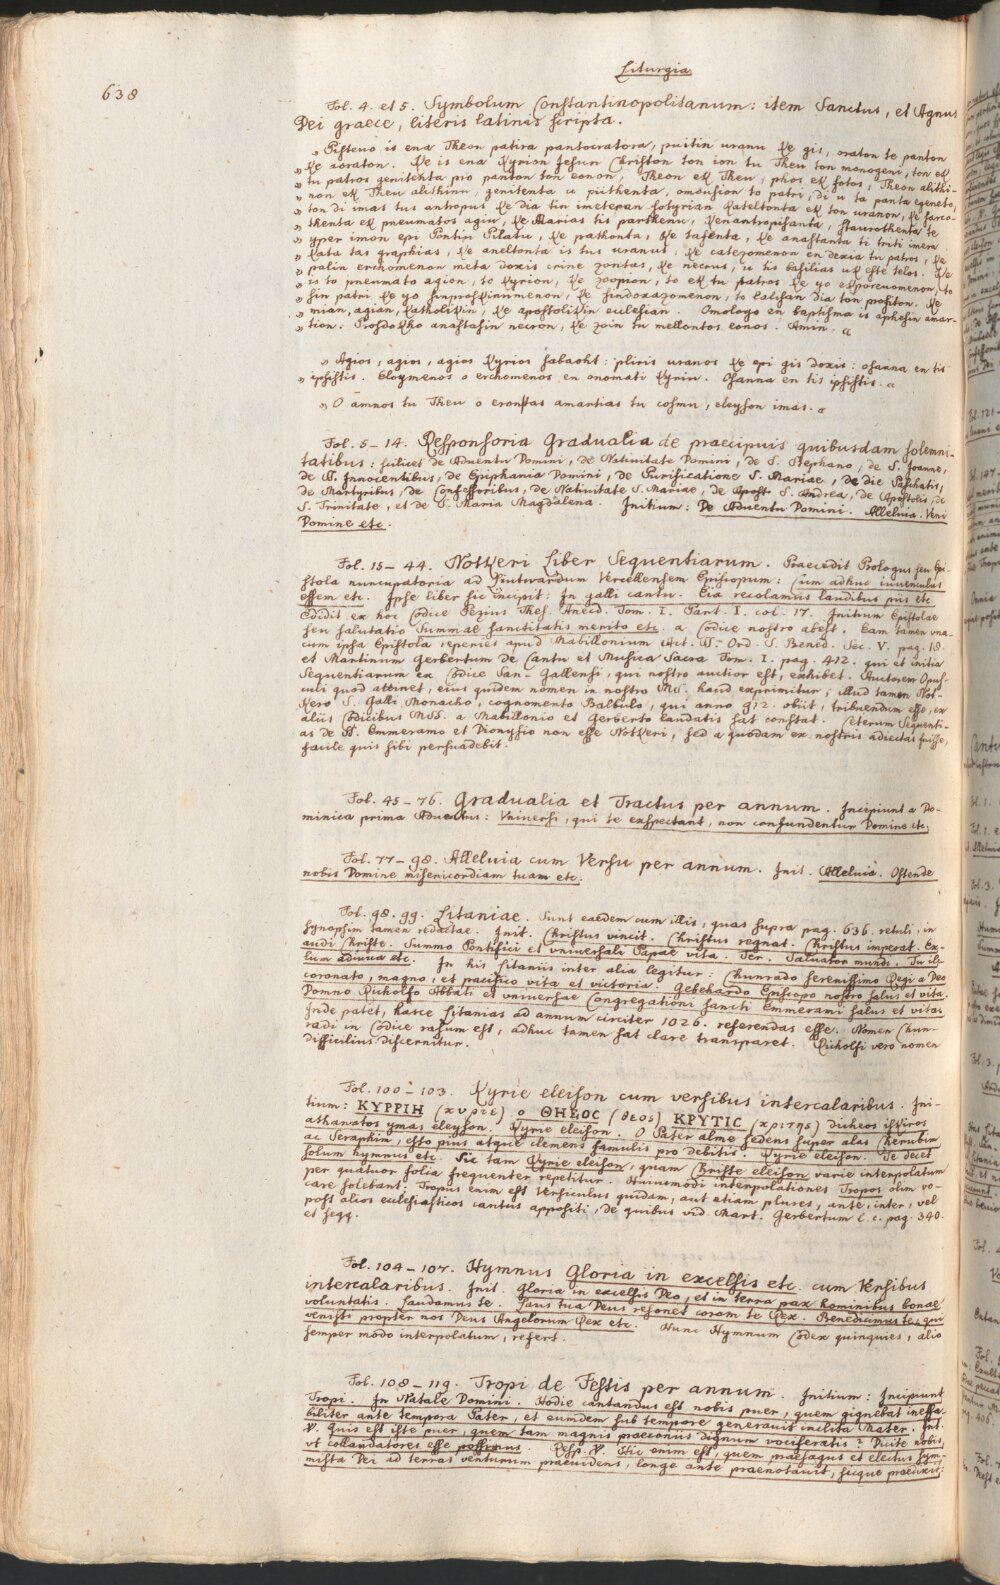 638
Liturgia
Fol. 4. et 5. Symbolum Constantinopolitanum: item Sanctus, et Agnus
Dei graece, literis latinis scripta.
„ Pisteuo is ena Theon patira pantocratora, puitin uranu ke gis, oraton te panton
„ ke aoraton. Ke is ena Kyrion Jesun Christon ton ion tu Theu ton monogeni, ton ek
„ tu patros genitenta pro panton ton eonon, Theon ek Theu, phos ek fotos, Theon alithi-
„ non ek Theu alithinu, genitenta u piithenta, omousion to patri, di u ta panta egeneto,
„ ton di imas tus antropus ke dia tin imeteran sotyrian kateltonta ek ton uranon, ke sarco-
„ thenta ek pneumatos agiu, ke Marias tis parthenu, kenantropisanta, staurothenta te
„ yper imon epi Pontiu Pilatu, ke pathonta, ke tafenta, ke anastanta ti triti imera
„ kata tas graphias, ke aneltonta is tus uranus, ke catezomenon en dexia tu patros, ke
„ palin erchomenon meta doxis crine zontas, ke necrus, u tis basilias uk este telos. Ke
„ is to pneumato agion, to Kyrion, ke zoopion, to ek tu patros ke yo ekporeuomenon, to
„ sin patri ke yo sinproskinumenon, ke sindoxazomenon, to lalisan dia ton profiton. Ke
„ mian, agian, katholikin, ke apostolikin eculesian. Omologo en baptisma is aphesin amar-
„ tion. Prosdokko anastasin necron, ke zoin tu mellontos eonos. Amin.
„ Agios, agios, agios Kyrios sabaoht: pliris uranos ke epi gis doxis: osanna en tis
„ ipsistis. Eloymenos o erchomenos en onomati Kyriu. Osanna en tis ipsistis.
„ O amnos tu Theu o erontas amantias tu cosmu, eleyson imas.
Fol. 5-14. Responsoria Gradualia de praecipuis quibusdam solemni-
tatibus: scilicet de Adventu Domini, de Nativitate Domini, de S. Stephano, de S. Joanne,
de SS. Innocentibus, de Epiphania Domini, de Purificatione S. Mariae, de die Paschatis,
de Martyribus, de Confessoribus, de Nativitate S. Mariae, de Apost S. Andrea, de Apostolis, de
S. Trinitate, et de S. Maria Magdalena. Initium: De Adventu Domini. Alleluia. Veni
Domine etc.
Fol. 15-44. Notkeri Liber Sequentiarum. Praecedit Prologus seu Epi-
stola nuncupatoria ad Liutwardum Vercellensem Episcopum: Cum adhuc iuvenculus
essem etc. Ipse liber sic incipit: In galli cantu. Eia recolamus laudibus piis etc.
Edidit ex hoc Codice Pezius Thes. Anecd. Tom. I. Part. I. col. 17. Initium Epistolae
seu salutatio Summae sanctitatis merito etc. a Codice nostro abest. Eam tamen una-
cum ipsa Epistola reperies apud Mabillonium Act. SS. Ord. S. Bened. Sec. V. pag. 18.
et Martinum Gerbertum de Cantu et Musica Sacra Tom. I. pag. 412. qui et initia
Sequentiarum ex Codice San-Gallensi, qui nostro auctior est, exhibet. Auctorem Opus-
culi quod attinet, eius quidem nomen in nostro MS. haud exprimitur; illud tamen Not-
kero S. Galli Monacho, cognomento Balbulo, qui anno 912. obiit, tribuendum esse, ex
aliis Codicibus MSS. a Mabillonio et Gerberto laudatis sat constat. Ceterum Sequenti-
as de SS. Emmeramo et Dionysio non esse Notkeri, sed a quodam ex nostris adiectas fuisse,
facile quis sibi persuadebit.
Fol. 45-76. Gradualia et Tractus per annum. Incipiunt a Do-
minica prima Adventus: Vniversi, qui te exspectant, non confundentur Domine etc.
Fol. 77-98. Alleluia cum Versu per annum. Init. Alleluia. Ostende
nobis Domine misericordiam tuam etc.
Fol. 98. 99. Litaniae. Sunt eaedem cum illis, quas supra pag. 636. retuli, in
synopsim tamen redactae. Init. Christus vincit. Christus regnat. Christus imperat. Ex-
audi Christe. Summo Pontifici et vniversali Papae vita. Ter. Salvator mundi. Tu il-
lum adiuva etc. In his Litaniis inter alia legitur: Chunrado serenissimo Regi a Deo
coronato, magno, et pacifico vita et victoria. Gebehardo Episcopo nostro salus et vita.
Domno Richolfo Abbati et vniversae Congregationi sancti Emmerami salus et vita.
Inde patet, hasce Litanias ad annum circiter 1026. referendas esse. Nomen Chun-
radi in Codice rasum est, adhuc tamen sat clare transparet. Richolfi vero nomen
difficilius discernitur.
Fol. 100-103. Kyrie eleison cum versibus intercalaribus. Ini-
tium: ΚΥΡΡΙΗ (κυριε) ο ΘΗΕΟC (θεος) ΚΡΥΤΙC (κριτης) dicheos ischiros
athanatos ymas eleyson. Kyrie eleison. O Pater alme sedens super alas Cherubin
ac Seraphim, esto pius atque clemens famulis pro debitis. Kyrie eleison. Te decet
solum hymnus etc. Sic tam Kyrie eleison, quam Christe eleison varie interpolatum
per quatuor folia frequenter repetitur. Huiusmodi interpolationes Tropos olim vo-
care solebant. Tropus enim est Versiculus quidam, aut etiam plures, ante, inter, vel
post alios ecclesiasticos cantus appositi, de quibus vid. Mart. Gerbertum l. c. pag. 340.
et seqq.
Fol. 104-107. Hymnus Gloria in excelsis etc. cum Versibus
intercalaribus. Init. Gloria in excelsis Deo, et in terra pax hominibus bonae
voluntatis. Laudamus te. Laus tua Deus resonet coram te Rex. Benedicimus te, qui
venisti propter nos Deus Angelorum Rex etc. Hunc Hymnum Codex quinquies, alio
semper modo interpolatum, refert.
Fol. 108-119. Tropi de Festis per annum. Initium: Incipiunt
Tropi. In Natale Domini. Hodie cantandus est nobis puer, quem gignebat ineffa-
biliter ante tempora Pater, et eumdem sub tempore generauit inclita Mater. Int.
V. Quis est iste puer, quem tam magnis praeconiis dignum vociferatis? Dicite nobis,
vt collaudatores esse possimus. Resp. V. Hic enim est, quem praesagus et electus sym-
mista Dei ad terras venturum praevidens, longe ante praenotauit, sicque praedixit: